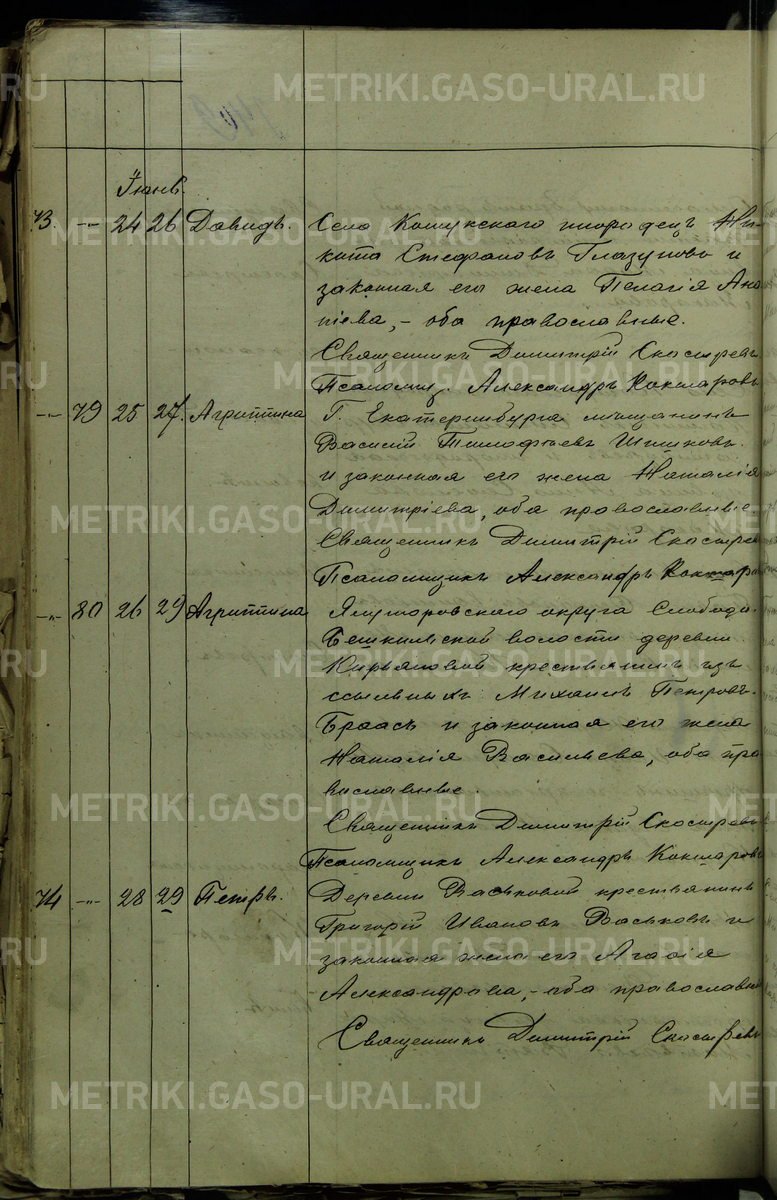 Іюнь.
73. -"- 24 26 Давидъ. Села Кошукскаго инородецъ Ни-
кита Стефановъ Глазуновъ и
законная его жена Пелагія Ана
ніева, - оба православные.
Священникъ Димитрій Скосыревъ
Псаломщ. Александръ Кокшаровъ
-"- 79 25 27. Агриппина Г. Екатеринбурга мѣщанинъ
Василій Тимофѣевъ Шишковъ
и законная его жена Наталія
Димитріева, оба православные
Священникъ Димитрій Скосырев
Псаломщикъ Александръ Кокшаро
-"- 80 26 29 Агриппина Ялуторовскаго округа Слободо-
Бешкильской волости деревни
крестьянинъ изъ
ссыльныхъ Михаилъ Петровъ
Браасъ и законная его жена
Наталія Васильева, оба пра
вославные.
Священникъ Димитрій Скосыревъ
Псаломщикъ Александръ Кокшаровъ
74 -"- 28 29 Петръ. Деревни Васьковой крестьянинъ
Григорій Ивановъ Васьковъ и
законная жена его Агафія
Александрова, - оба православны
Священникъ Димитрій Скосыревъ
METRIKI.GASO-URAL.RU